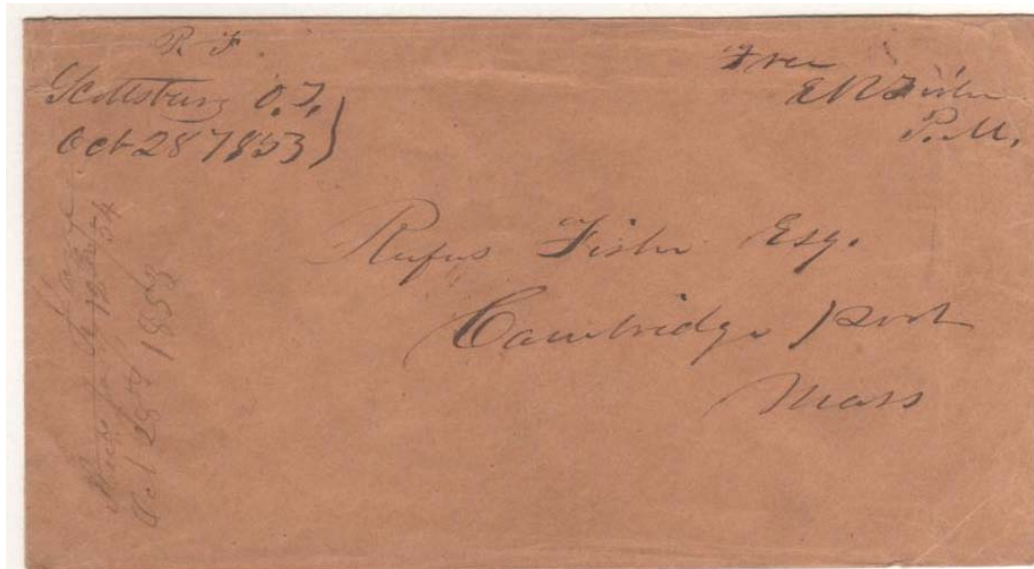 R. F.
Scottsburg O.T.
Oct 28 1853
Free
E R Fisher
P.M.
Rufus Fisher Esq.
Cambridge port
Mass
Oct 28 1853